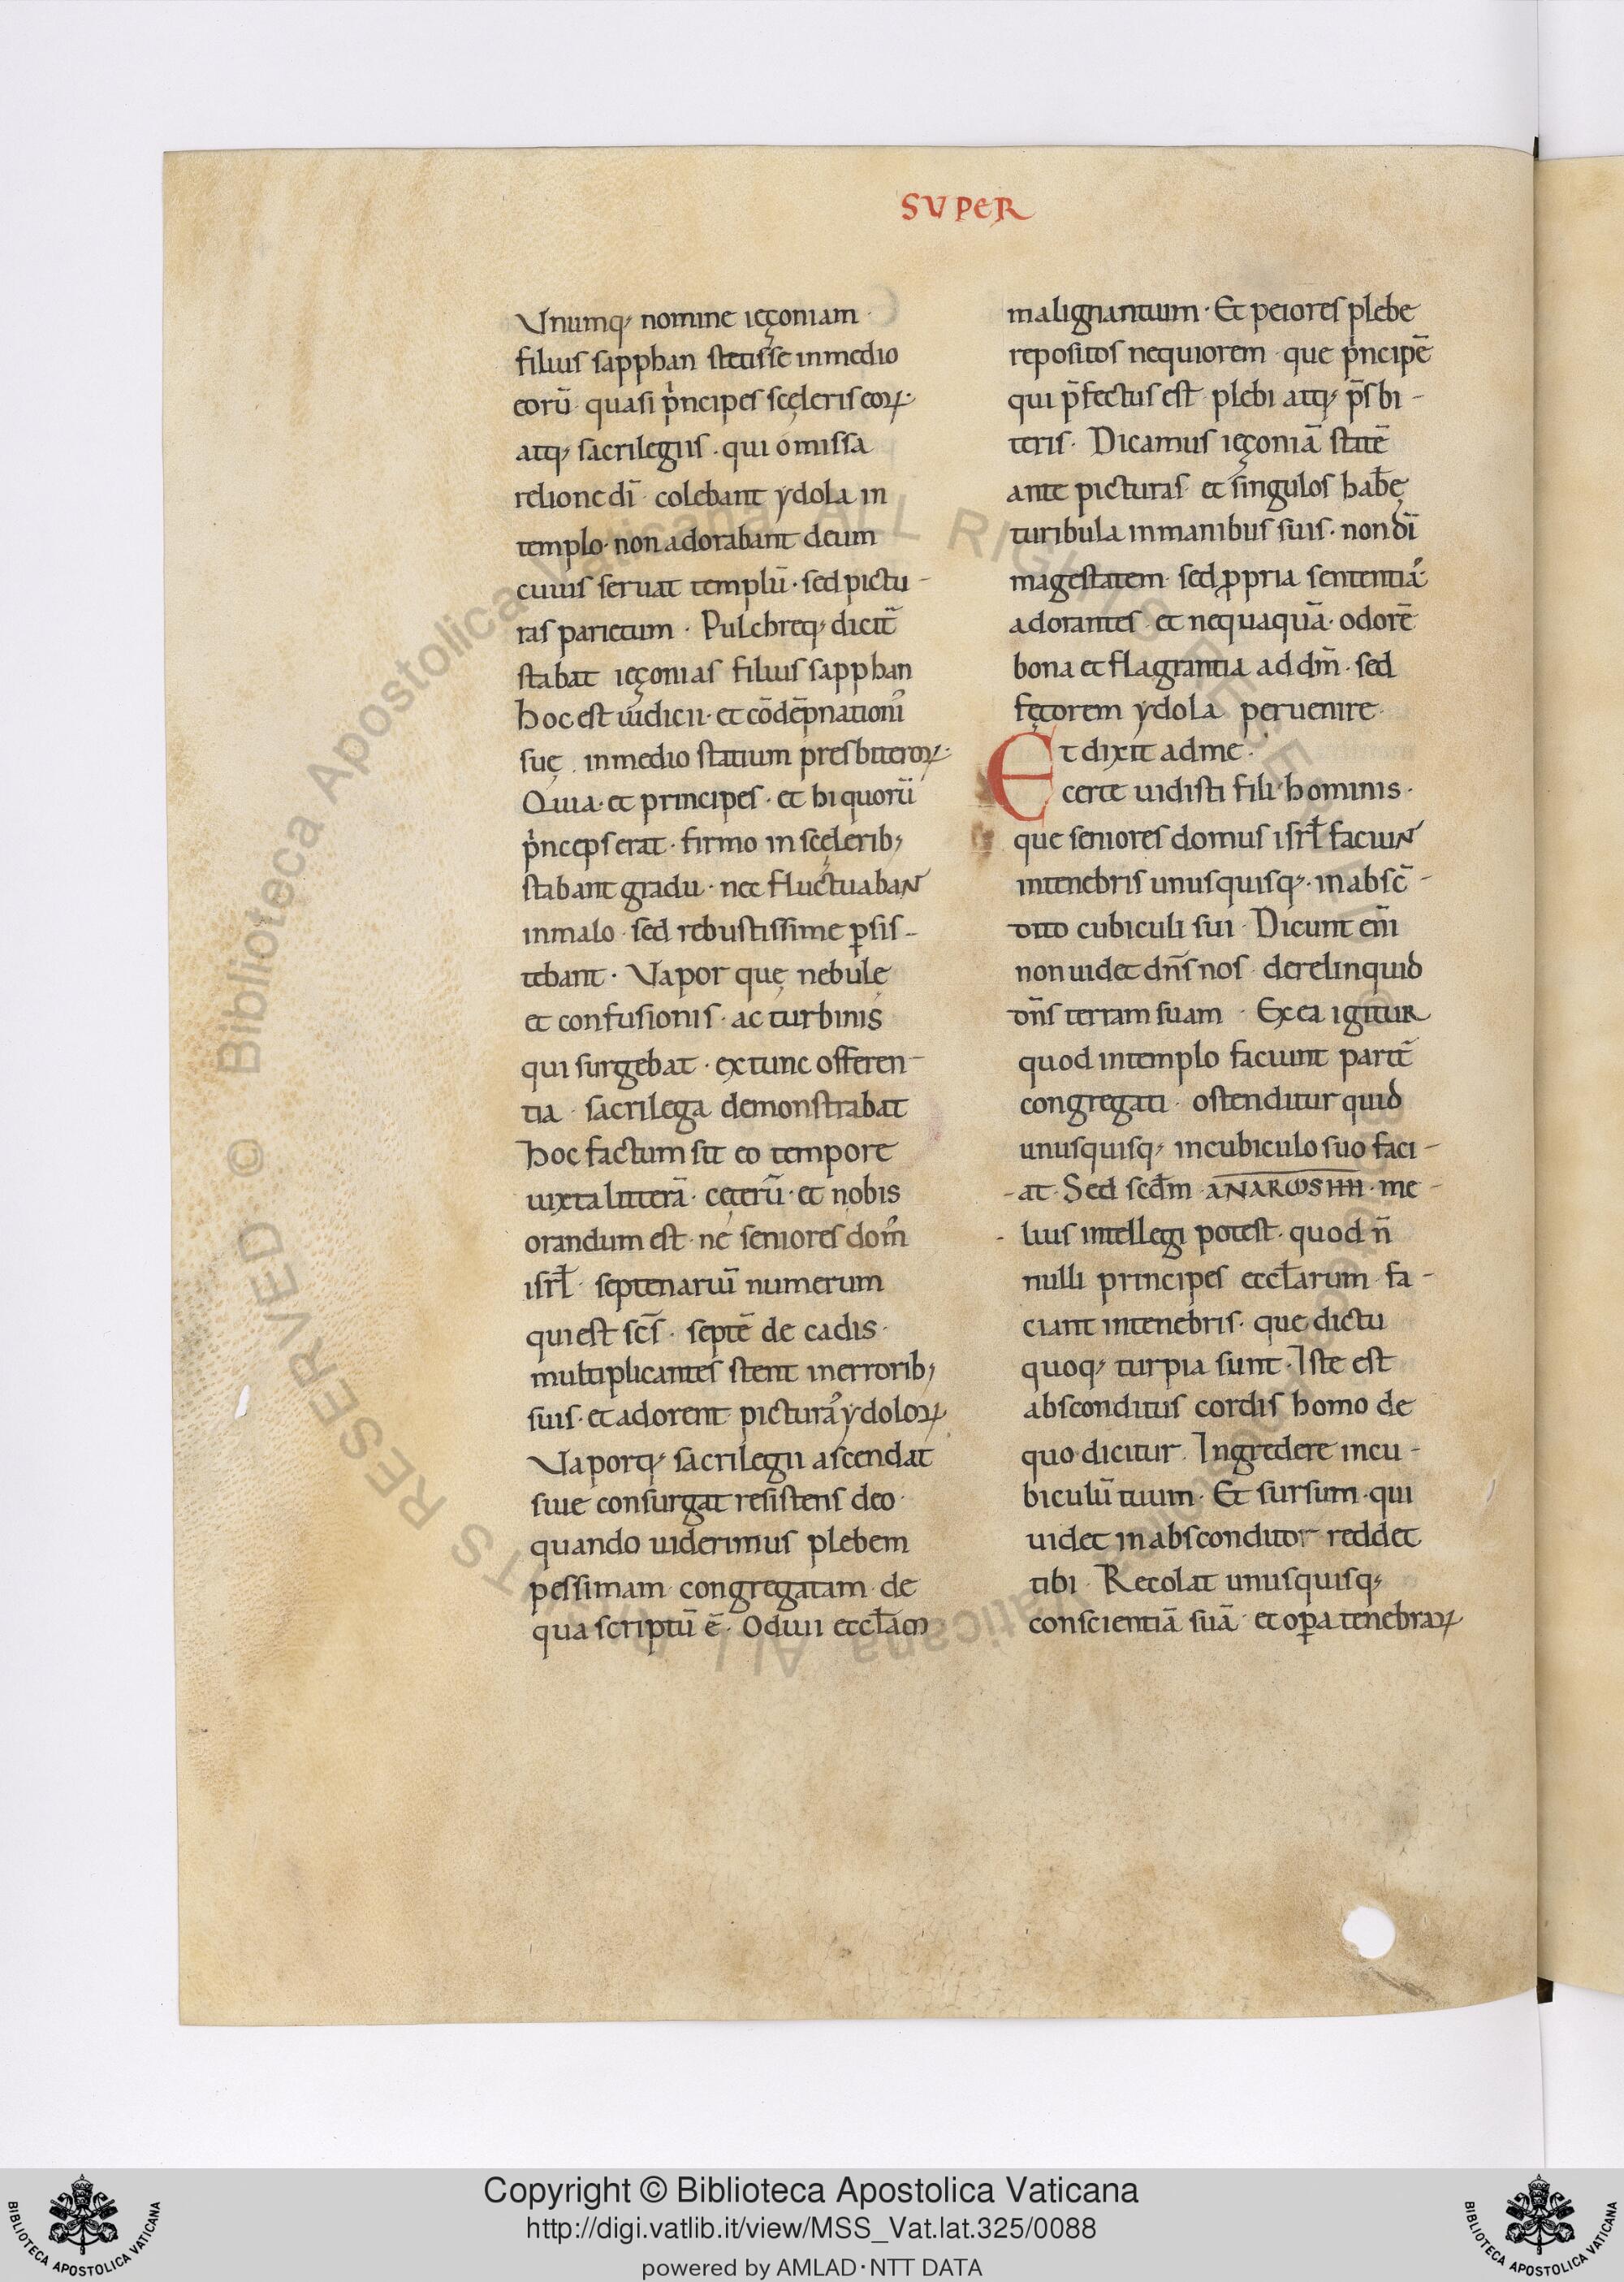 SVPER
Vnumq; nomine ięçoniam
filius sapphan stetisse inmedio
eorū· quasi pͥncipes scęleris eoꝝ·
atq; sacrilegiis· qui omissa
relione dī· colebant ydola in
templo· non adorabant deum
cuius seruat templū· sed pictu-
ras parietum· Pulchreq; dicit̄
stabat ięçonias filius sapphan
hoc est iudicii· et cōdēpnationi᷒
suę· inmedio statium presbiteroꝝ·
Quia· et principes· et hi quorū
pͥnceps erat· firmo in scęlerib;
stabant gradu· nec fluctuabaN
inmalo· sed rebustissime ꝑsis-
tebant· Vapor quę nebulę
et confusionis· ac turbinis
qui surgebat· ex tunc offeren-
tia· sacrilega demonstrabat
hoc factum sit eo tempore
iuxta litterā· cęterū· et nobis
orandum est· ne seniores dom᷒
isrł· septenariū numerum
qui est scs̄· septē de cadis·
multiplicantes stent inerrorib;
suis· et adorent pictura᷒ ydoloꝝ·
Vaporq; sacrilegii ascendat
siue consurgat resistens deo·
quando uiderimus plebem
pessimam· congregatam· de
qua scriptū ē· Odiui eccłam
malignantium· Et peiores plebe
repositos nequiorem· que pͥncipē
qui p̄fectus est· plebi atq; p̄sbi-
teris· Dicamus ięçoniā statē
ante picturas· et singulos habę̄
turibula inmanibus suis· non dī
magestatem· sed ꝓpria sententia᷒·
adorantes· et nequaquā· odorē
bona et flagrantia ad dm̄· sed
fętorem ydola peruenire·
Et dixit adme·
certe uidisti fili hominis·
que seniores domus isrł faciuN
intenebris unusquisq;· inabsc̄-
dito cubiculi sui· Dicunt em̄
non uidet dn̄s nos· derelinquid
dn̄s terram suam· Ex ea igitur
quod intemplo faciunt parit̄
congregati· ostenditur quid
unusquisq; incubiculo suo faci-
-at· Sed scd̄m aNARωSIIII· me-
lius intellegi potest· quod n̄
nulli principes eccłarum· fa-
ciant intenebris· que dictu
quoq; turpia sunt· Iste est
absconditus cordis homo de
quo dicitur· Ingredere incu-
biculū tuum· Et sursum· qui
uidet in abscondito reddet
tibi· Recolat unusquisq;
conscientiā suā· et oꝑa tenebraꝝ
Copyright © Biblioteca Apostolica Vaticana
http://digi.vatlib.it/view/MSS_Vat.lat.325/0088
powered by AMLAD·NTT DATA